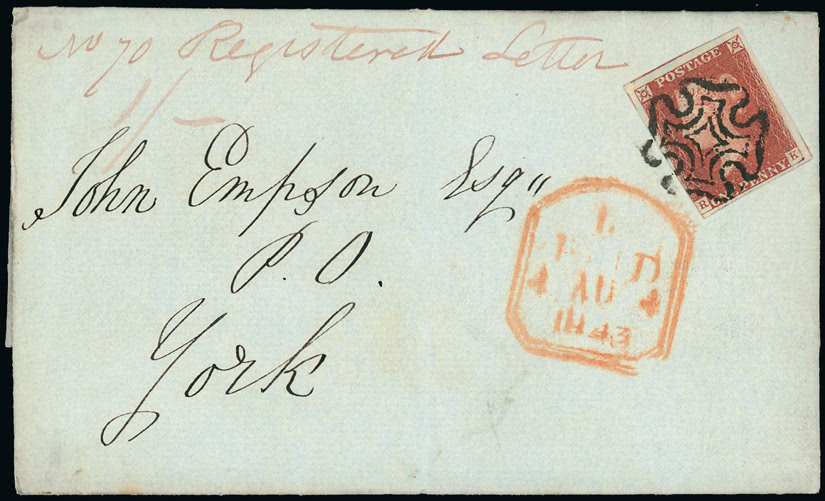 No 70 Registered Letter
1/-
John Empson Esq"
P. O.
York
POSTAGE
R ONE PENNY K
L
PAID
4 AU 4
1843